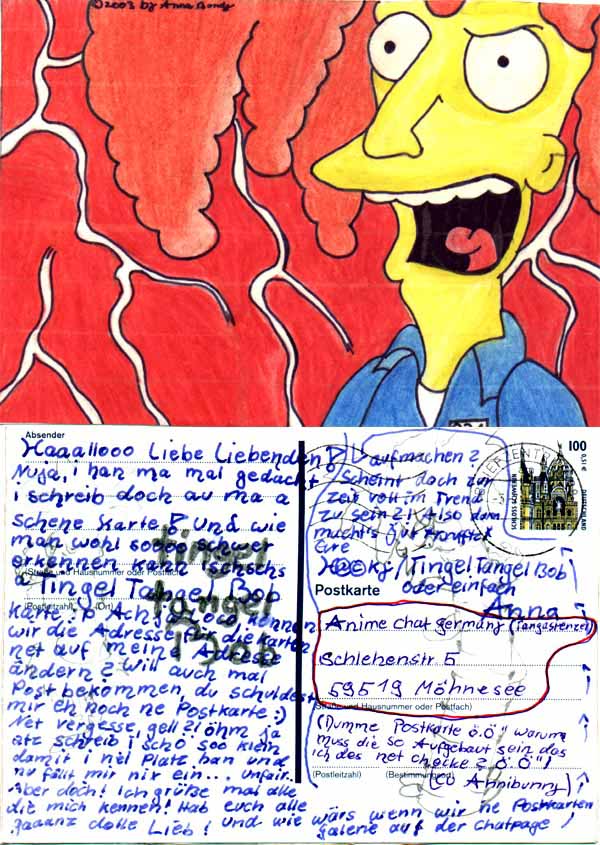 ©2003 by Anna Bondy
Absender
Haaallooo Liebe Liebenden!
Muja, i han ma mal gedacht
i schreib doch au ma a
schene Karte! Und wie
man wohl soooo schwer
erkennen kann ischschs
a Tingel Tangel Bob
(Straße und Hausnummer oder Postfach)
(Postleitzahl) (Ort)
Karte :P Ach ja, Coco kennen
wir die Adresse für die Karten
net auf meine Adresse
ändern? Will auch mal
Post bekommen, du schuldest
mir eh noch ne Postkarte :)
Net vergesse, gell? öhm ja
atz schreib i schö soo klein
damit i nen Platz han und
nu fällt mir nix ein... unfair..
Aber doch! Ich grüße mal alle
die mich kennen! Hab euch alle
gaaanz dolle Lieb! Und wie wärs wenn wir ne Postkarten
galerie auf der Chatpage
tingel
tangel
Bob
aufmachen?
Scheint doch zur
Zeit voll im Trend
zu sein?! Also dann
macht's gut
Eure
Tingel Tangel Bob
oder einfach
Anna
100
0,51 €
SCHLOSS SCHWERIN
DEUTSCHLAND
Postkarte
Anime chat germany (Tangastenzel)
Schlehenstr. 5
59519 Möhnesee
(Straße und Hausnummer oder Postfach)
(Dumme Postkarte ö.ö" warum
muss die so Aufgebaut sein das
ich des net checke? ö.ö"!
(Postleitzahl) (Bestimmungsort)
(CO Ahnibunny)